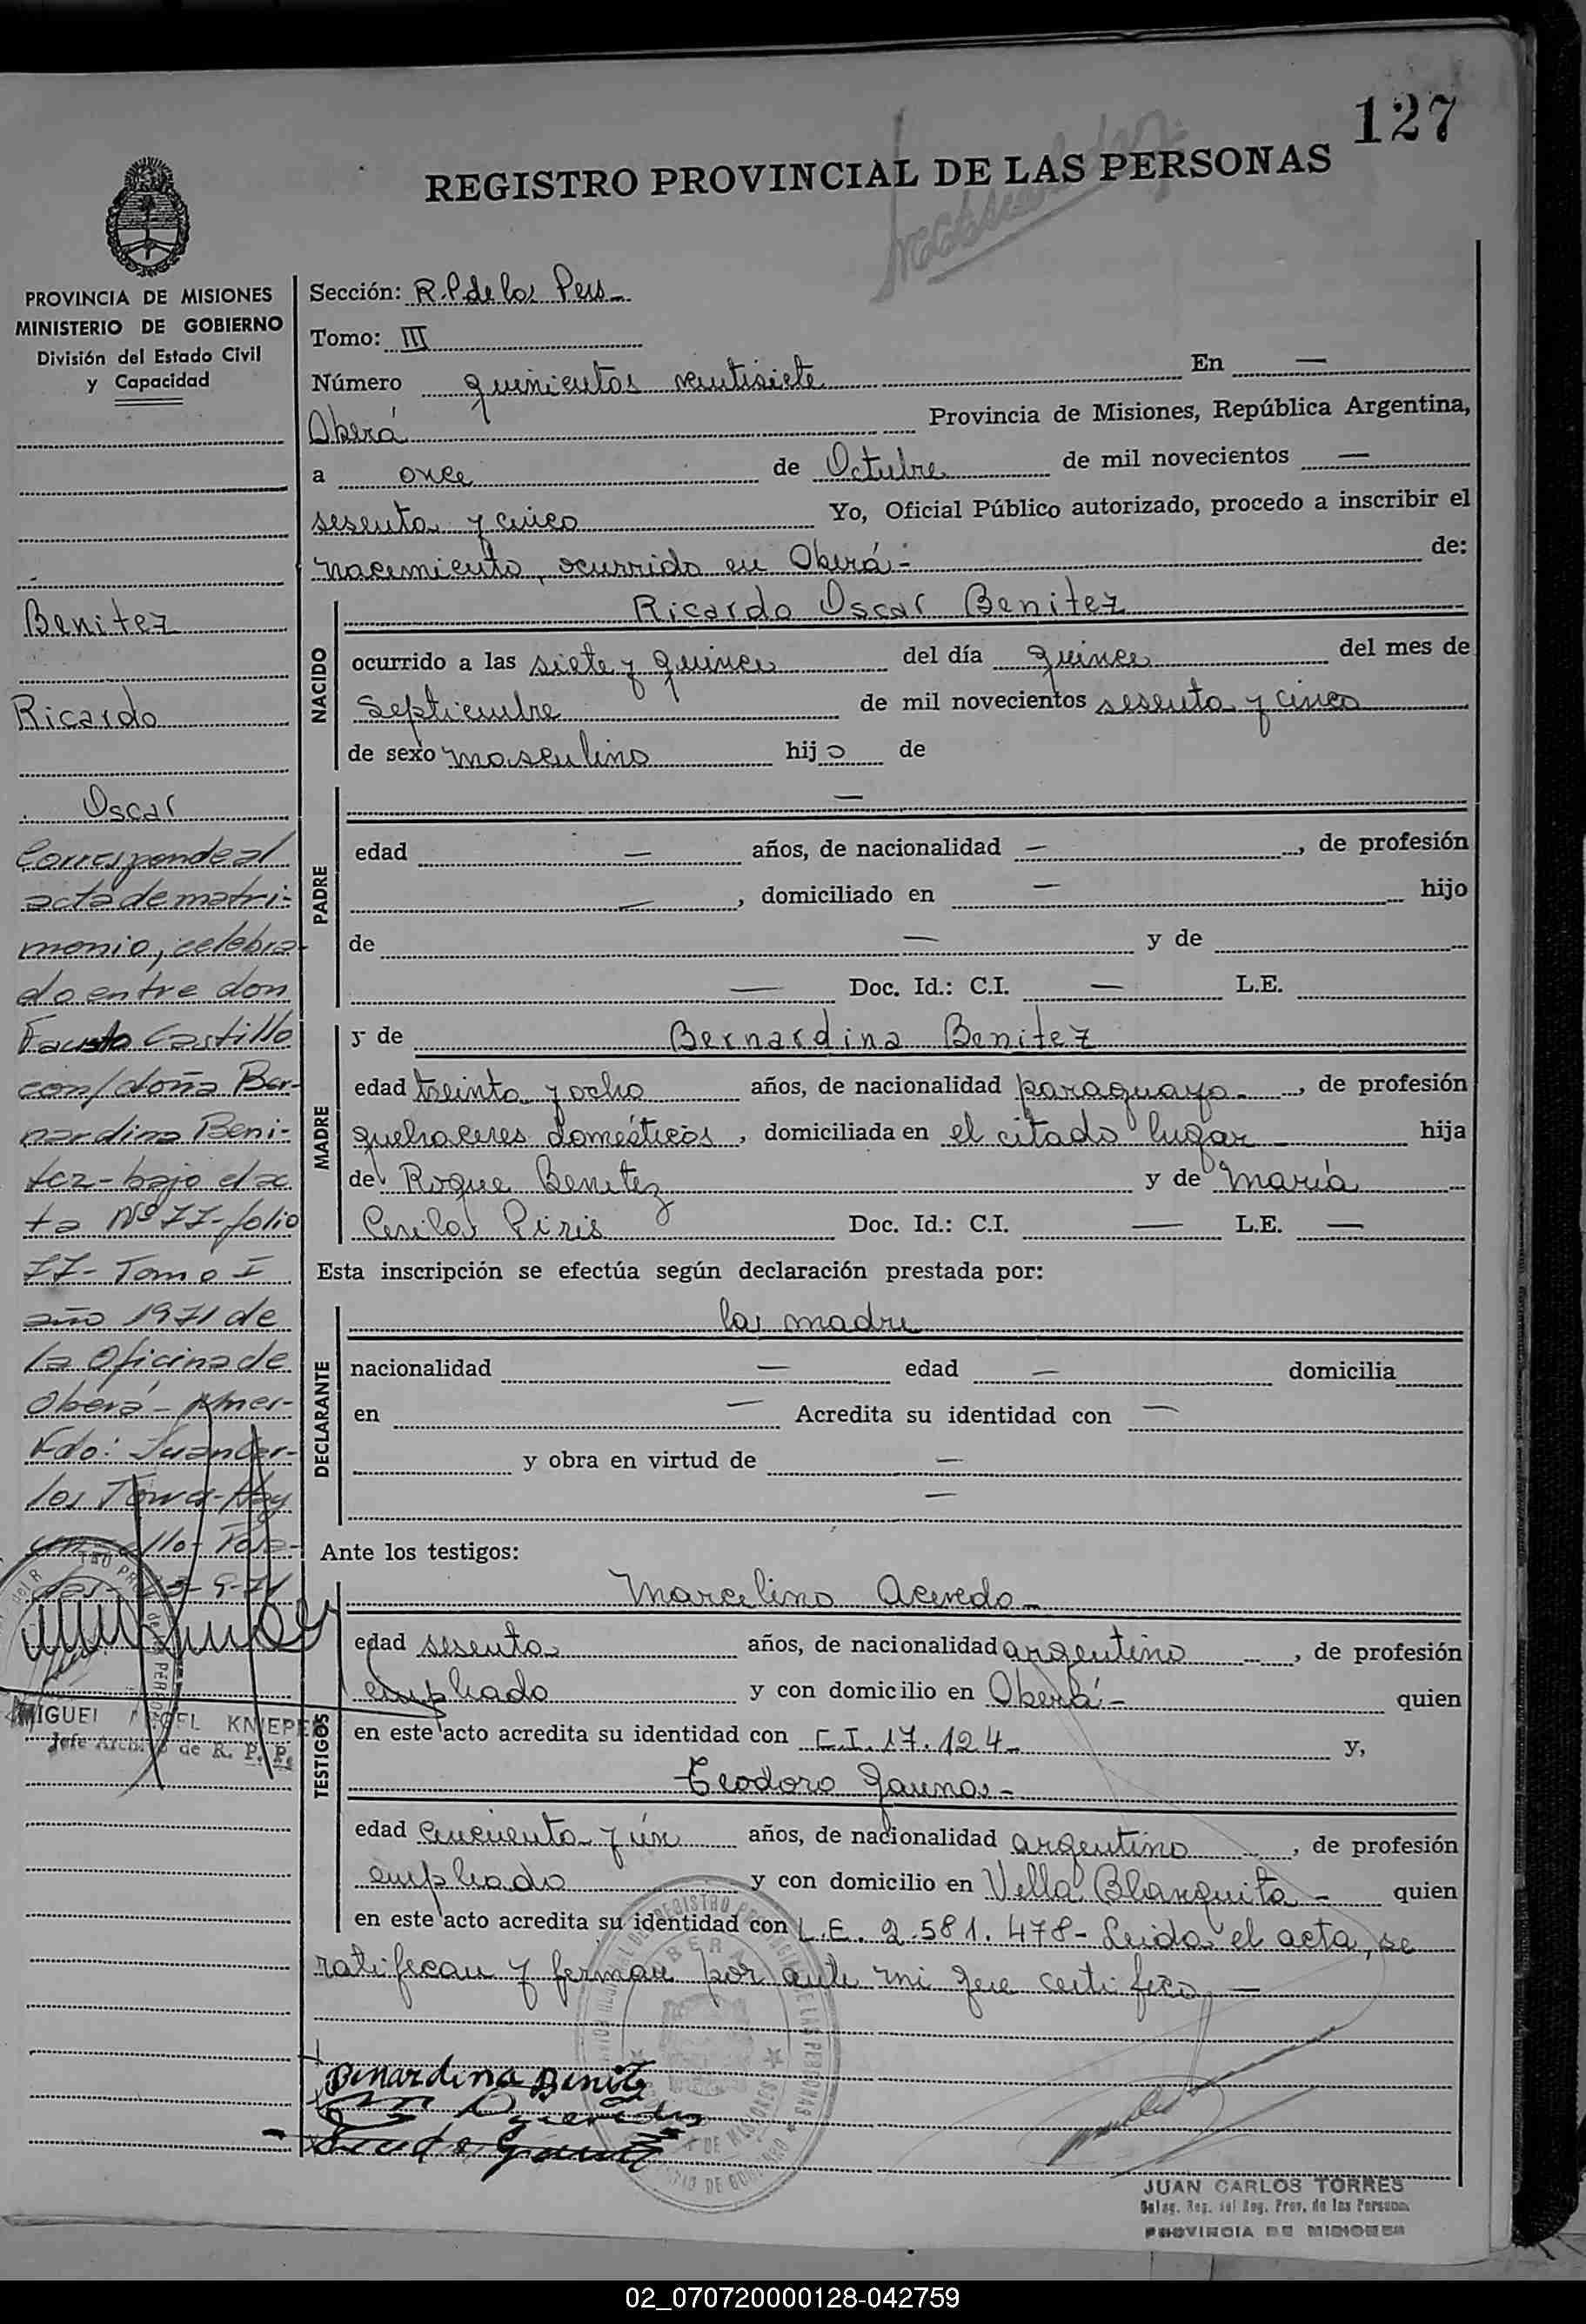 127
REGISTRO PROVINCIAL DE LAS PERSONAS
PROVINCIA DE MISIONES
MINISTERIO DE GOBIERNO
División del Estado Civil
y Capacidad
Benitez
Ricardo
Oscar
Corresponde al
acta de matri-
monio, celebra-
do entre don
Fausto Castillo
con/doña Ber-
nardina Beni-
tez - bajo el ac
ta Nº 77 - folio
77 - Tomo I
año 1971 de
la Oficina de
Oberá -
Fdo: Juan Car-
los Hay
un Posa-
das
MIGUEL ANGEL KNIEPER
Jefe Archivo de R. P. P.
Sección: R.P de las Pers -
Tomo: III
Número quinientos veintisiete En —
Oberá Provincia de Misiones, República Argentina,
a once de Octubre de mil novecientos —
sesenta y cinco Yo, Oficial Público autorizado, procedo a inscribir el
nacimiento, ocurrido en Oberá - de:
NACIDO
Ricardo Oscar Benitez
ocurrido a las siete y quince del día quince del mes de
Septiembre de mil novecientos sesenta y cinco
de sexo masculino hijo de
PADRE
—
edad — años, de nacionalidad — , de profesión
— , domiciliado en — hijo
de — y de
— Doc. Id.: C.I. — L.E.
MADRE
y de Bernardina Benitez
edad treinta y ocho años, de nacionalidad paraguaya - , de profesión
quehaceres domésticos , domiciliada en el citado lugar hija
de Roque Benitez y de María
Piris Doc. Id.: C.I. — L.E. —
Esta inscripción se efectúa según declaración prestada por:
DECLARANTE
la madre
nacionalidad — edad — domicilia
en — Acredita su identidad con —
y obra en virtud de —
—
Ante los testigos:
TESTIGOS
Marcelino Acevedo -
edad sesenta años, de nacionalidad argentino , de profesión
empleado y con domicilio en Oberá - quien
en este acto acredita su identidad con C.I. 17.124 - y,
Teodoro Gauna -
edad cincuenta y ún años, de nacionalidad argentino , de profesión
empleado y con domicilio en Villa Blanquita - quien
en este acto acredita su identidad con L.E. 2.581.478 - Leida el acta, se
ratifican y firman por ante mi que certifico, —
Bernardina Benitez
JUAN CARLOS TORRES
PROVINCIA DE MISIONES
02_070720000128-042759